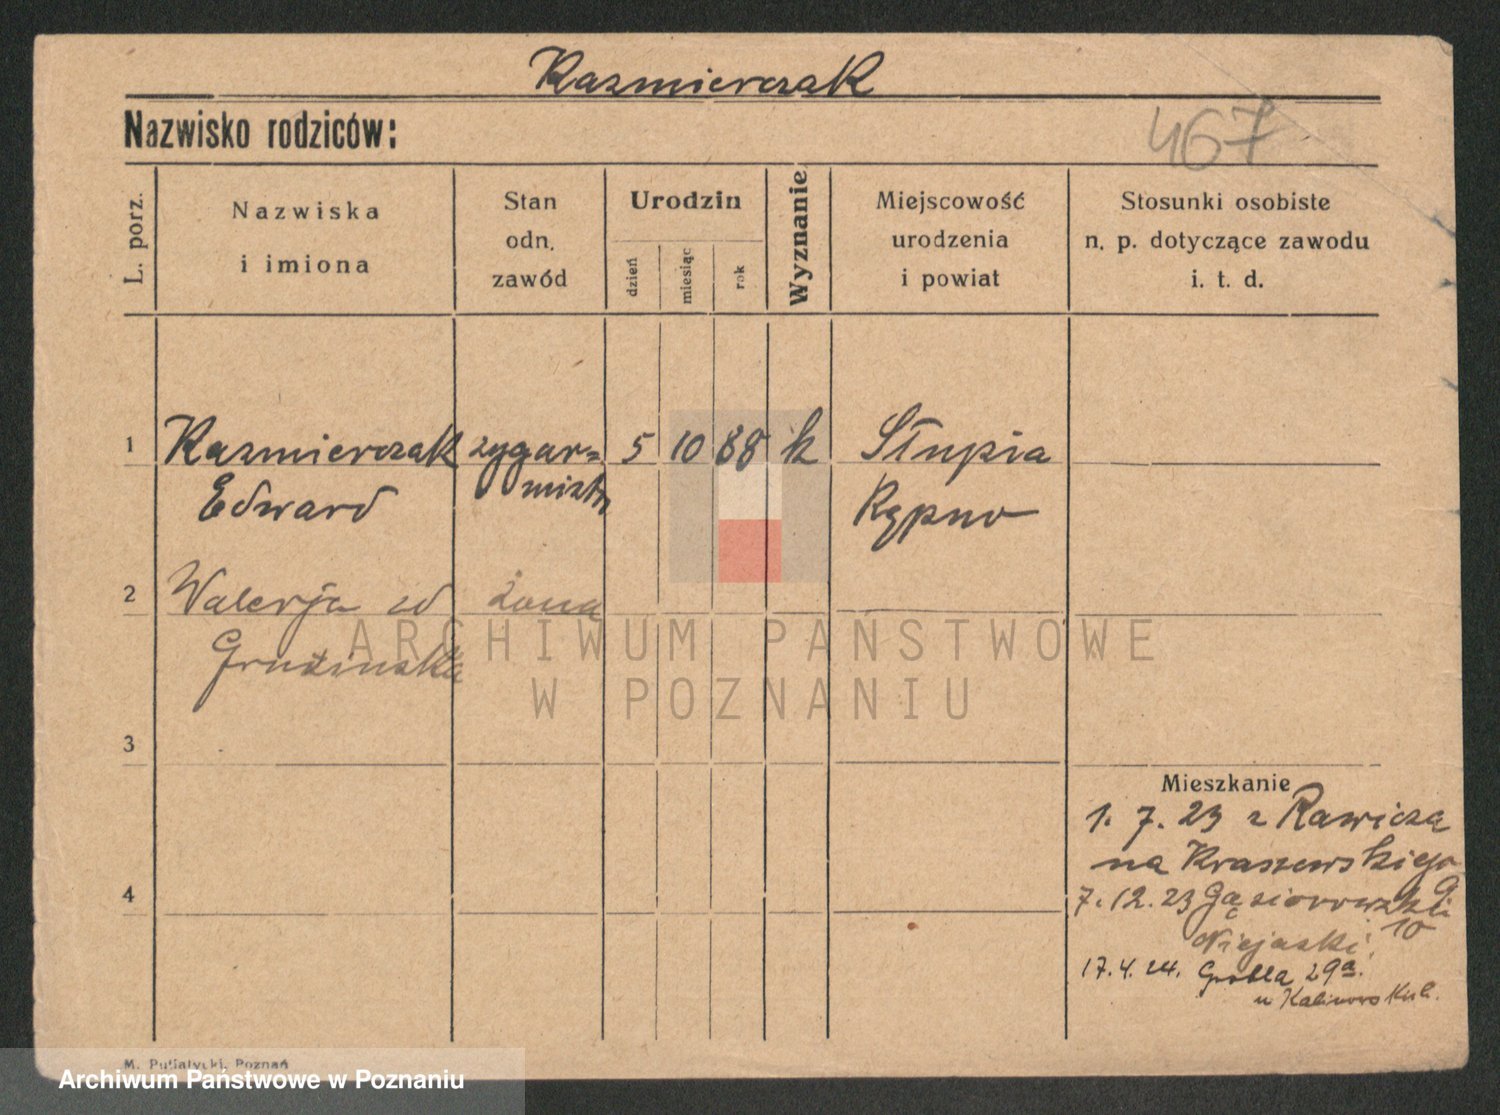 Kazmierczak
467
Nazwisko rodziców:
L. porz.
Nazwiska
i imiona
Stan
odn.
zawód
Urodzin
dzień
miesiąc
rok
Wyznanie
Miejscowość
urodzenia
i powiat
Stosunki osobiste
n. p. dotyczące zawodu
i. t. d.
1 Kazmierczak zygar= 5 10 88 k Słupia
Edward mistrz Kępno
2 Walerja zd żona
Gruzinska
ARCHIWUM PAŃSTWOWE
W POZNANIU
3
Mieszkanie
1. 7. 23 z Rawicza
na Kraszewskiego
9
4
7. 12. 23 Gąsiorowskich
10
17. 4. 24. Grobla 29a.
M. Putiatycki, Poznań
Archiwum Państwowe w Poznaniu